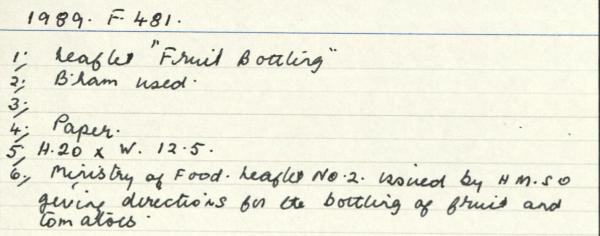 1989. F. 481.
1; Leaflet "Fruit Bottling"
2; B'ham used.
3;
4; Paper.
5, H. 20 x W. 12.5.
6, Ministry of Food. Leaflet No. 2. issued by H M. S O
giving directions for the bottling of fruit and
tomatoes.